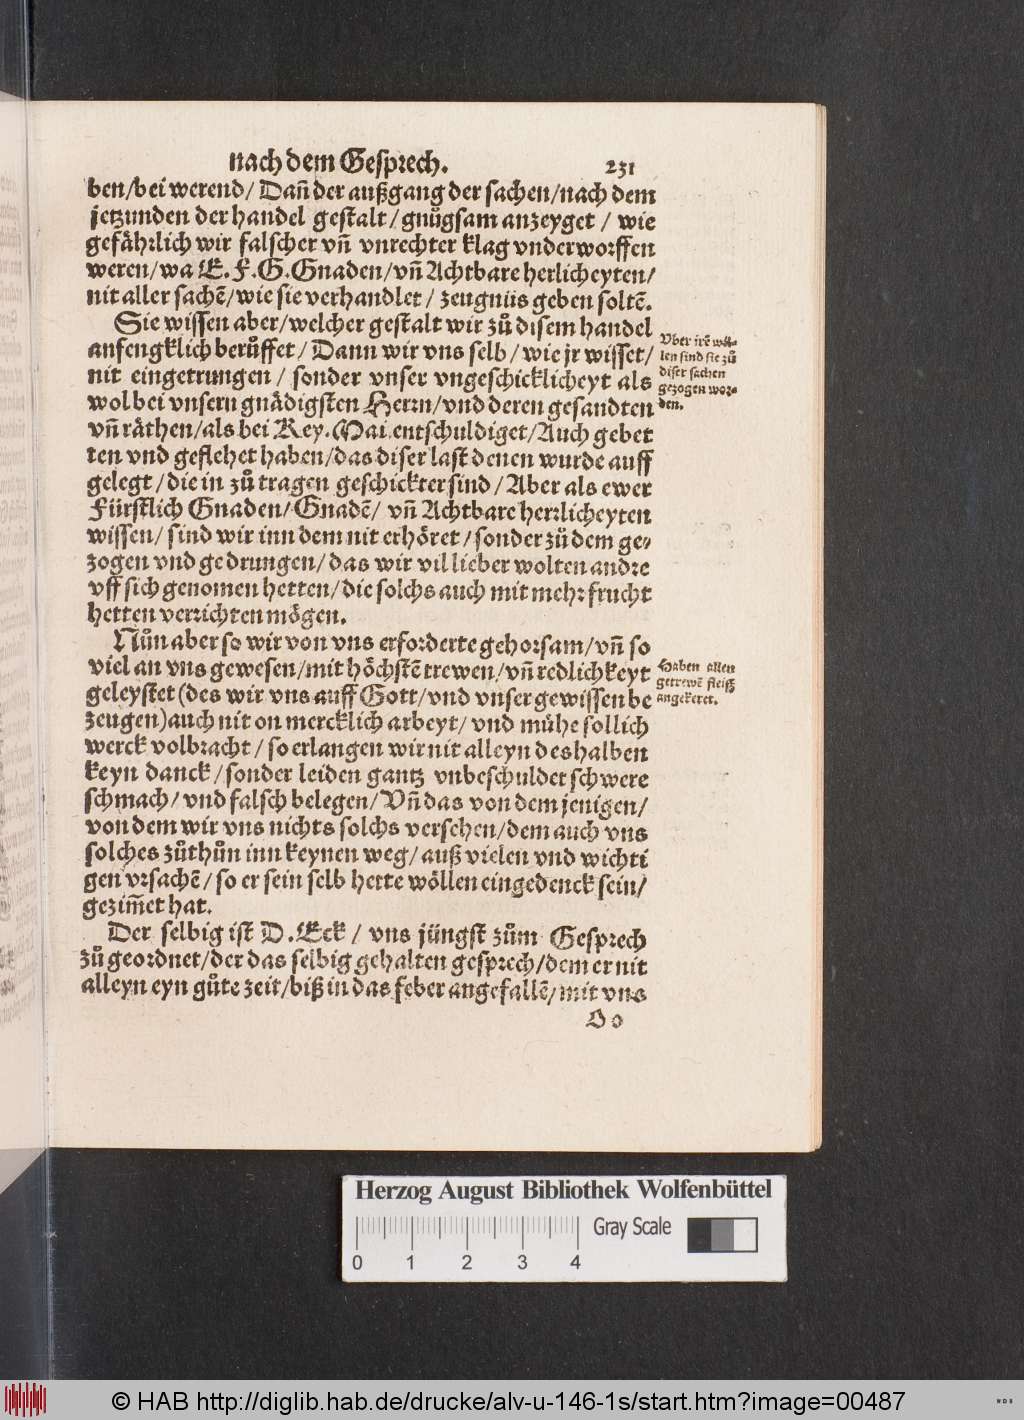 nach dem Gesprech. 231
ben/bei werend/ Dañ der außgang der sachen/nach dem
jetzunden der handel gestalt/gnůgsam anzeyget / wie
gefährlich wir falscher vñ vnrechter klag vnderworffen
weren/wa E. F. G. Gnaden/vñ Achtbare herlicheyten/
nit aller sachē/wie sie verhandlet / zeugniis geben soltē.
Sie wissen aber/welcher gestalt wir zů disem handel
anfengklich berůffet/ Dann wir vns selb/wie jr wisset/
nit eingetrungen / sonder vnser vngeschicklicheyt als
wol bei vnsern gnädigsten Herrn/vnd deren gesandten
vñ räthen/als bei Key. Mai. entschuldiget/Auch gebet
ten vnd geflehet haben/das diser last denen wurde auff
gelegt/die in zů tragen geschickter sind/Aber als ewer
Fürstlich Gnaden/Gnadē/ vñ Achtbare herrlicheyten
wissen/ sind wir inn dem nit erhöret/sonder zů dem ge-
zogen vnd gedrungen/das wir vil lieber wolten andre
vff sich genomen hetten/die solchs auch mit mehr frucht
hetten verrichten mögen.
Vber irē wil-
len sind sie zů
diser sachen
gezogen wor-
den.
Nůn aber so wir von vns erforderte gehorsam/vñ so
viel an vns gewesen/mit höchstē trewen/vñ redlichkeyt
geleystet (des wir vns auff Gott/vnd vnser gewissen be
zeugen) auch nit on mercklich arbeyt/ vnd mühe sollich
werck volbracht / so erlangen wir nit alleyn deshalben
keyn danck/sonder leiden gantz vnbeschuldet schwere
schmach/vnd falsch belegen/Vñ das von dem jenigen/
von dem wir vns nichts solchs versehen/dem auch vns
solches zůthůn inn keynen weg/auß vielen vnd wichti
gen vrsachē/so er sein selb hette wöllen eingedenck sein/
gezim̄et hat.
Haben allen
getrewē fleiß
angekeret.
Der selbig ist D. Eck / vns jüngst zům Gesprech
zů geordnet/der das selbig gehalten gesprech/dem er nit
alleyn eyn gůte zeit/biß in das feber angefallē/mit vns
Oo
Herzog August Bibliothek Wolfenbüttel
Gray Scale
0 1 2 3 4
© HAB http://diglib.hab.de/drucke/alv-u-146-1s/start.htm?image=00487